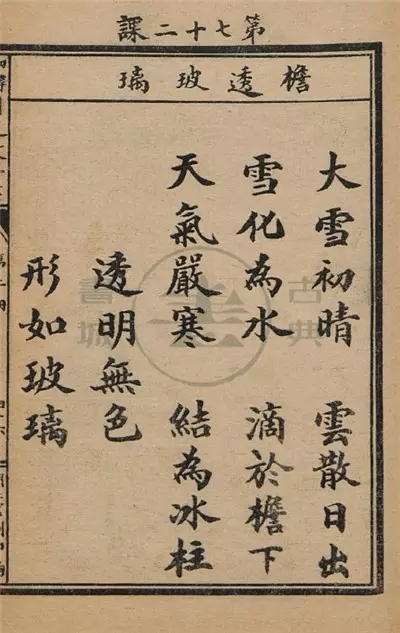 第七十二課
檐透玻璃
大雪初晴　雲散日出
雪化為水　滴於檐下
天氣嚴寒　結為冰柱
透明無色
形如玻璃
古典書城